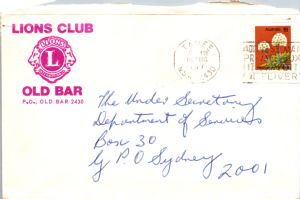 LIONS CLUB
LIONS
L
OLD BAR
P.O. OLD BAR 2430
TAREE
N.S.W. 2430
Australia
The Under Secretary
Department of Services
Box 30
G P O Sydney
2001